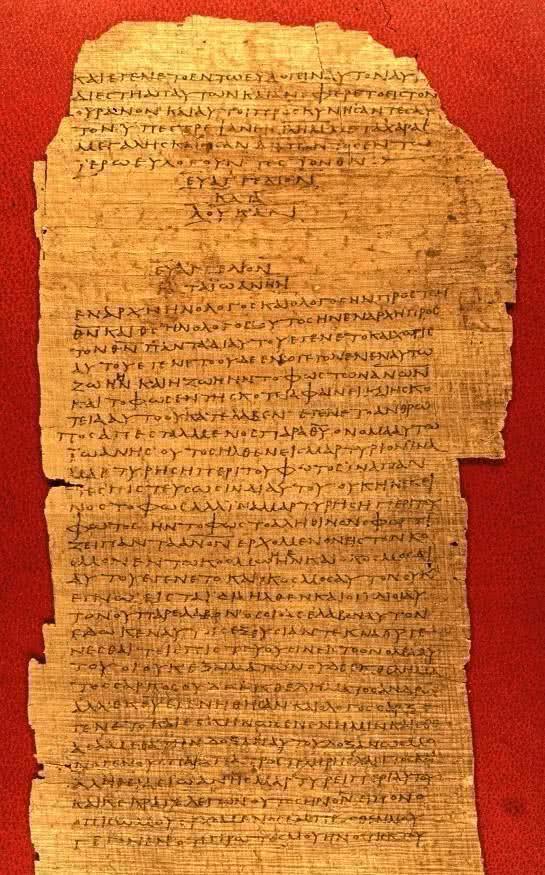 ΚΑΙ ΕΓΕΝΕΤΟ ΕΝ ΤΩ ΕΥΛΟΓΕΙΝ ΑΥΤΟΝ ΑΥΤΟΥΣ
ΔΙΕΣΤΗ ΑΠ ΑΥΤΩΝ ΚΑΙ ΑΝΕΦΕΡΕΤΟ ΕΙΣ ΤΟΝ
ΟΥΡΑΝΟΝ ΚΑΙ ΑΥΤΟΙ ΠΡΟΣΚΥΝΗΣΑΝΤΕΣ ΑΥ
ΤΟΝ ΥΠΕΣΤΡΕΨΑΝ ΕΙΣ ΙΛΗΜ ΜΕΤΑ ΧΑΡΑΣ
ΜΕΓΑΛΗΣ ΚΑΙ ΗΣΑΝ ΔΙΑ ΠΑΝΤΟΣ ΕΝ ΤΩ
ΙΕΡΩ ΕΥΛΟΓΟΥΝΤΕΣ ΤΟΝ ΘΝ
ΕΥΑΓΓΕΛΙΟΝ
ΚΑΤΑ
ΛΟΥΚΑΝ
ΕΥΑΓΓΕΛΙΟΝ
ΚΑΤΑ ΙΩΑΝΗΝ
ΕΝ ΑΡΧΗ ΗΝ Ο ΛΟΓΟΣ ΚΑΙ Ο ΛΟΓΟΣ ΗΝ ΠΡΟΣ ΤΟΝ
ΘΝ ΚΑΙ ΘΣ ΗΝ Ο ΛΟΓΟΣ ΟΥΤΟΣ ΗΝ ΕΝ ΑΡΧΗ ΠΡΟΣ
ΤΟΝ ΘΝ ΠΑΝΤΑ ΔΙ ΑΥΤΟΥ ΕΓΕΝΕΤΟ ΚΑΙ ΧΩΡΙΣ
ΑΥΤΟΥ ΕΓΕΝΕΤΟ ΟΥΔΕ ΕΝ Ο ΓΕΓΟΝΕΝ ΕΝ ΑΥΤΩ
ΖΩΗ ΗΝ ΚΑΙ Η ΖΩΗ ΗΝ ΤΟ ΦΩΣ ΤΩΝ ΑΝΩΝ
ΚΑΙ ΤΟ ΦΩΣ ΕΝ ΤΗ ΣΚΟΤΙΑ ΦΑΙΝΕΙ ΚΑΙ Η ΣΚΟ
ΤΕΙΑ ΑΥΤΟ ΟΥ ΚΑΤΕΛΑΒΕΝ ΕΓΕΝΕΤΟ ΑΝΘΡΩ
ΠΟΣ ΑΠΕΣΤΑΛΜΕΝΟΣ ΠΑΡΑ ΘΥ ΟΝΟΜΑ ΑΥΤΩ
ΙΩΑΝΗΣ ΟΥΤΟΣ ΗΛΘΕΝ ΕΙΣ ΜΑΡΤΥΡΙΟΝ ΙΝΑ
ΜΑΡΤΥΡΗΣΗ ΠΕΡΙ ΤΟΥ ΦΩΤΟΣ ΙΝΑ ΠΑΝ
ΤΕΣ ΠΙΣΤΕΥΣΩΣΙΝ ΔΙ ΑΥΤΟΥ ΟΥΚ ΗΝ ΕΚΕΙ
ΝΟΣ ΤΟ ΦΩΣ ΑΛΛ ΙΝΑ ΜΑΡΤΥΡΗΣΗ ΠΕΡΙ ΤΟΥ
ΦΩΤΟΣ ΗΝ ΤΟ ΦΩΣ ΤΟ ΑΛΗΘΙΝΟΝ Ο ΦΩΤΙ
ΖΕΙ ΠΑΝΤΑ ΑΝΟΝ ΕΡΧΟΜΕΝΟΝ ΕΙΣ ΤΟΝ ΚΟ
ΣΜΟΝ ΕΝ ΤΩ ΚΟΣΜΩ ΗΝ ΚΑΙ Ο ΚΟΣΜΟΣ ΔΙ
ΑΥΤΟΥ ΕΓΕΝΕΤΟ ΚΑΙ Ο ΚΟΣΜΟΣ ΑΥΤΟΝ ΟΥΚ
ΕΓΝΩ ΕΙΣ ΤΑ ΙΔΙΑ ΗΛΘΕΝ ΚΑΙ ΟΙ ΙΔΙΟΙ ΑΥ
ΤΟΝ ΟΥ ΠΑΡΕΛΑΒΟΝ ΟΣΟΙ ΔΕ ΕΛΑΒΟΝ ΑΥΤΟΝ
ΕΔΩΚΕΝ ΑΥΤΟΙΣ ΕΞΟΥΣΙΑΝ ΤΕΚΝΑ ΘΥ ΓΕ
ΝΕΣΘΑΙ ΤΟΙΣ ΠΙΣΤΕΥΟΥΣΙΝ ΕΙΣ ΤΟ ΟΝΟΜΑ ΑΥ
ΤΟΥ ΟΙ ΟΥΚ ΕΞ ΑΙΜΑΤΩΝ ΟΥΔΕ ΕΚ ΘΕΛΗΜΑ
ΤΟΣ ΣΑΡΚΟΣ ΟΥΔΕ ΕΚ ΘΕΛΗΜΑΤΟΣ ΑΝΔΡΟΣ
ΑΛΛ ΕΚ ΘΥ ΕΓΕΝΗΘΗΣΑΝ ΚΑΙ Ο ΛΟΓΟΣ ΣΑΡΞ Ε
ΓΕΝΕΤΟ ΚΑΙ ΕΣΚΗΝΩΣΕΝ ΕΝ ΗΜΙΝ ΚΑΙ ΕΘΕ
ΑΣΑΜΕΘΑ ΤΗΝ ΔΟΞΑΝ ΑΥΤΟΥ ΔΟΞΑΝ ΩΣ ΜΟ
ΝΟΓΕΝΟΥΣ ΠΑΡΑ ΠΑΤΡΟΣ ΠΛΗΡΗΣ ΧΑΡΙΤΟΣ ΚΑΙ
ΑΛΗΘΕΙΑΣ ΙΩΑΝΗΣ ΜΑΡΤΥΡΕΙ ΠΕΡΙ ΑΥΤΟΥ
ΚΑΙ ΚΕΚΡΑΓΕΝ ΛΕΓΩΝ ΟΥΤΟΣ ΗΝ ΟΝ ΕΙΠΟΝ Ο
ΟΠΙΣΩ ΜΟΥ ΕΡΧΟΜΕΝΟΣ ΕΜΠΡΟΣΘΕΝ ΜΟΥ
ΓΕΓΟΝΕΝ ΟΤΙ ΠΡΩΤΟΣ ΜΟΥ ΗΝ ΟΤΙ ΕΚ ΤΟΥ